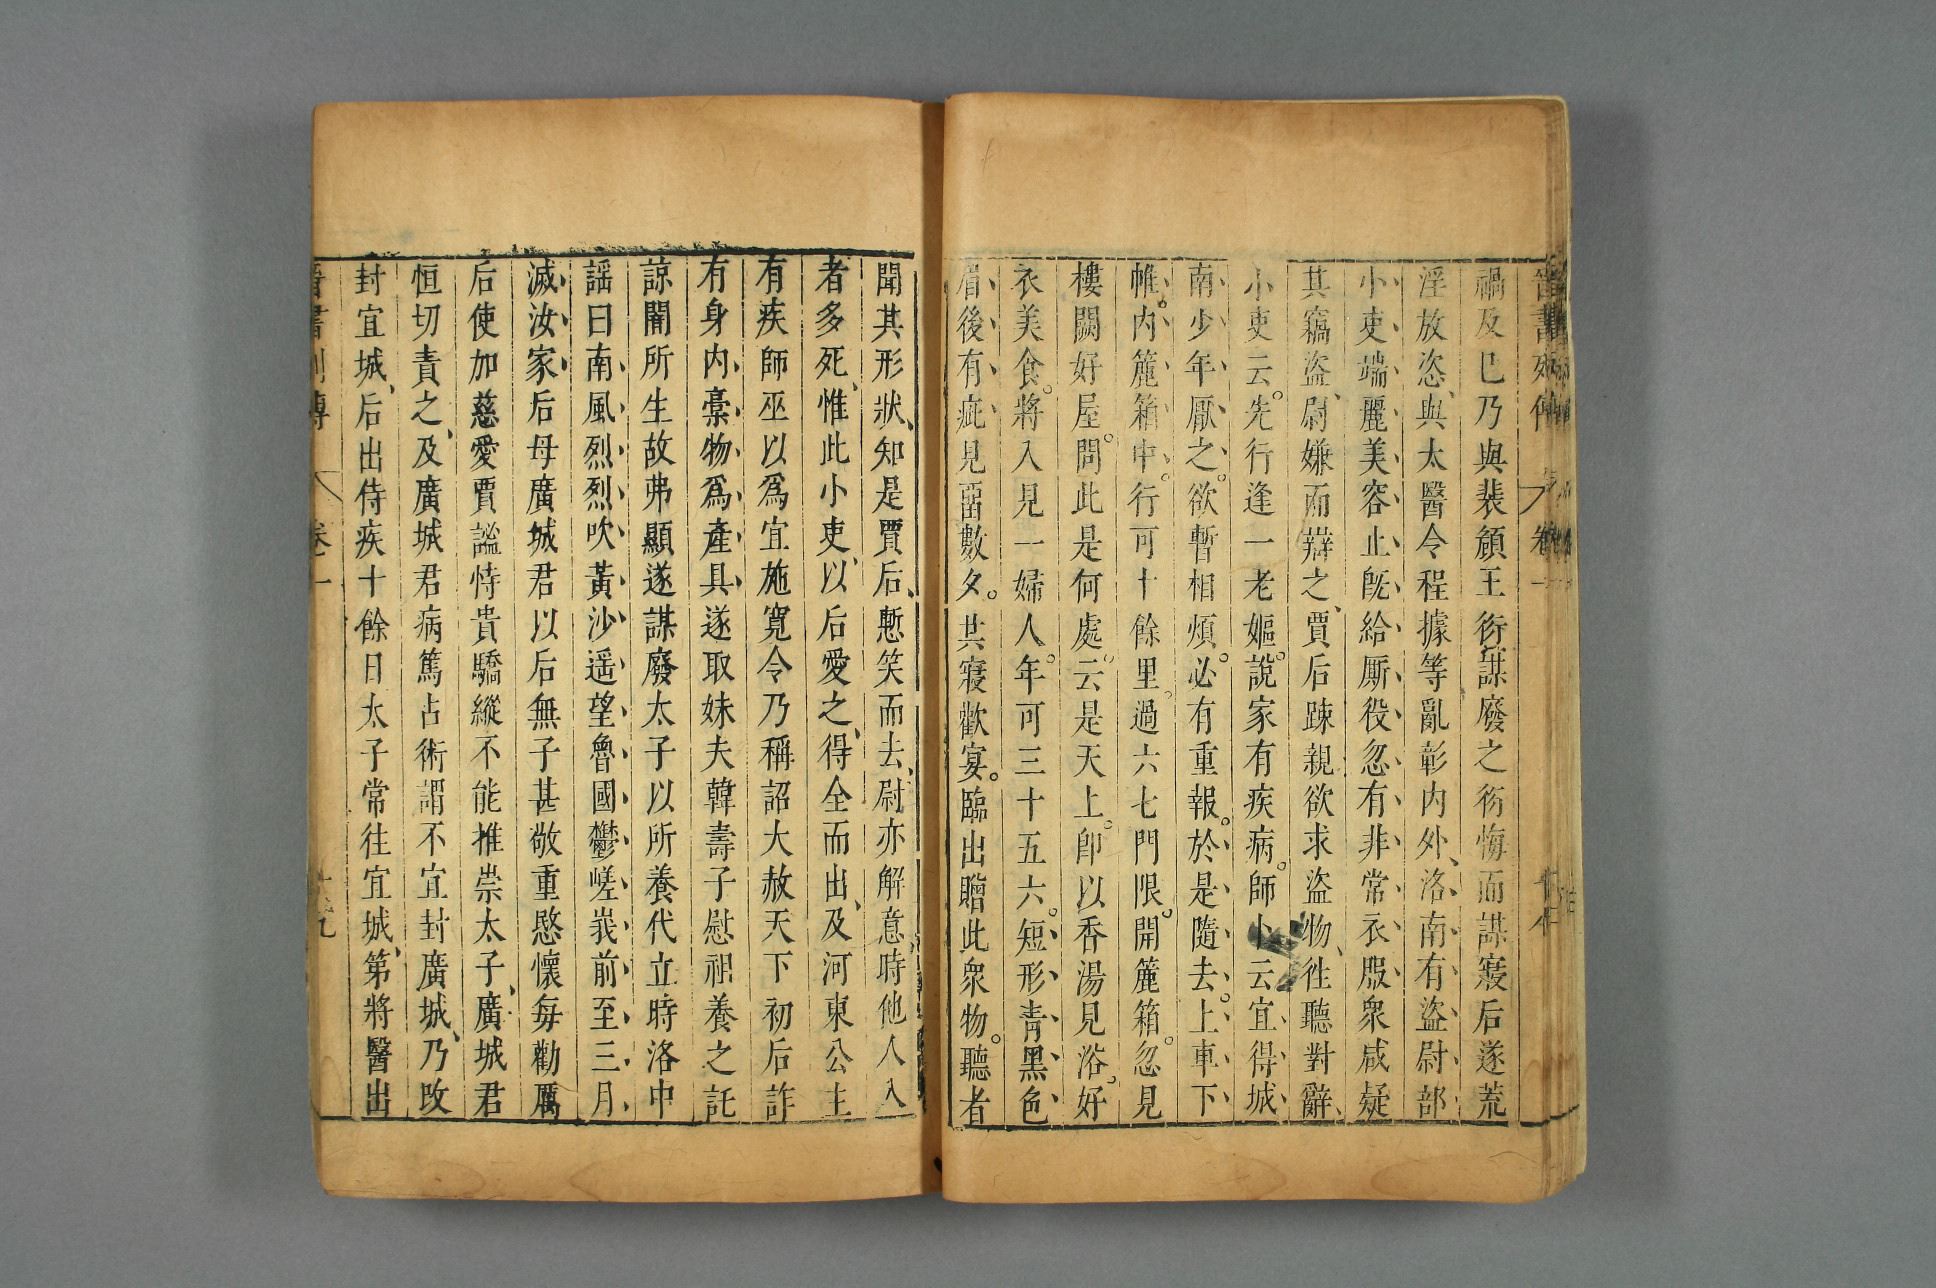 禍及巳乃與裴頠王衍謀廢之衍悔而謀寢后遂荒
淫放恣、與太醫令程據等亂彰内外、洛南有盜尉部
小吏端麗美容止既給厮役忽有非常衣服衆咸疑
其竊盜、尉嫌而辯之、賈后踈親欲求盜物、徃聽對辭、
小吏云。先行逢一老嫗。說家有疾病。師卜云宜得城
南少年厭之。欲暫相煩。必有重報。於是隨去。上車下
帷。内簏箱中。行可十餘里。過六七門限。開簏箱。忽見
樓闕好屋。問此是何處。云是天上。卽以香湯見浴。好
衣美食。將入見一婦人。年可三十五六。短形青黑色
眉後有疵見畱數夕。共寢歡宴。臨出贈此衆物。聽者
聞其形狀、知是賈后、慙笑而去、尉亦解意時他人入
者多死、惟此小吏、以后愛之、得全而出、及河東公主
有疾師巫以爲宜施寬令乃稱詔大赦天下初后詐
有身内藁物爲產具遂取妹夫韓壽子慰祖養之託
諒闇所生故弗顯遂謀廢太子以所養代立時洛中
謡曰南風烈烈吹黃沙遥望魯國鬱嵯峩前至三月
滅汝家后母廣城君以后無子甚敬重愍懷每勸厲
后使加慈愛賈謐恃貴驕縱不能推崇太子、廣城君
恒切責之、及廣城君病篤占術謂不宜封廣城、乃改
封宜城、后出侍疾十餘日太子常往宜城、第將醫出
晋書列傳 卷一